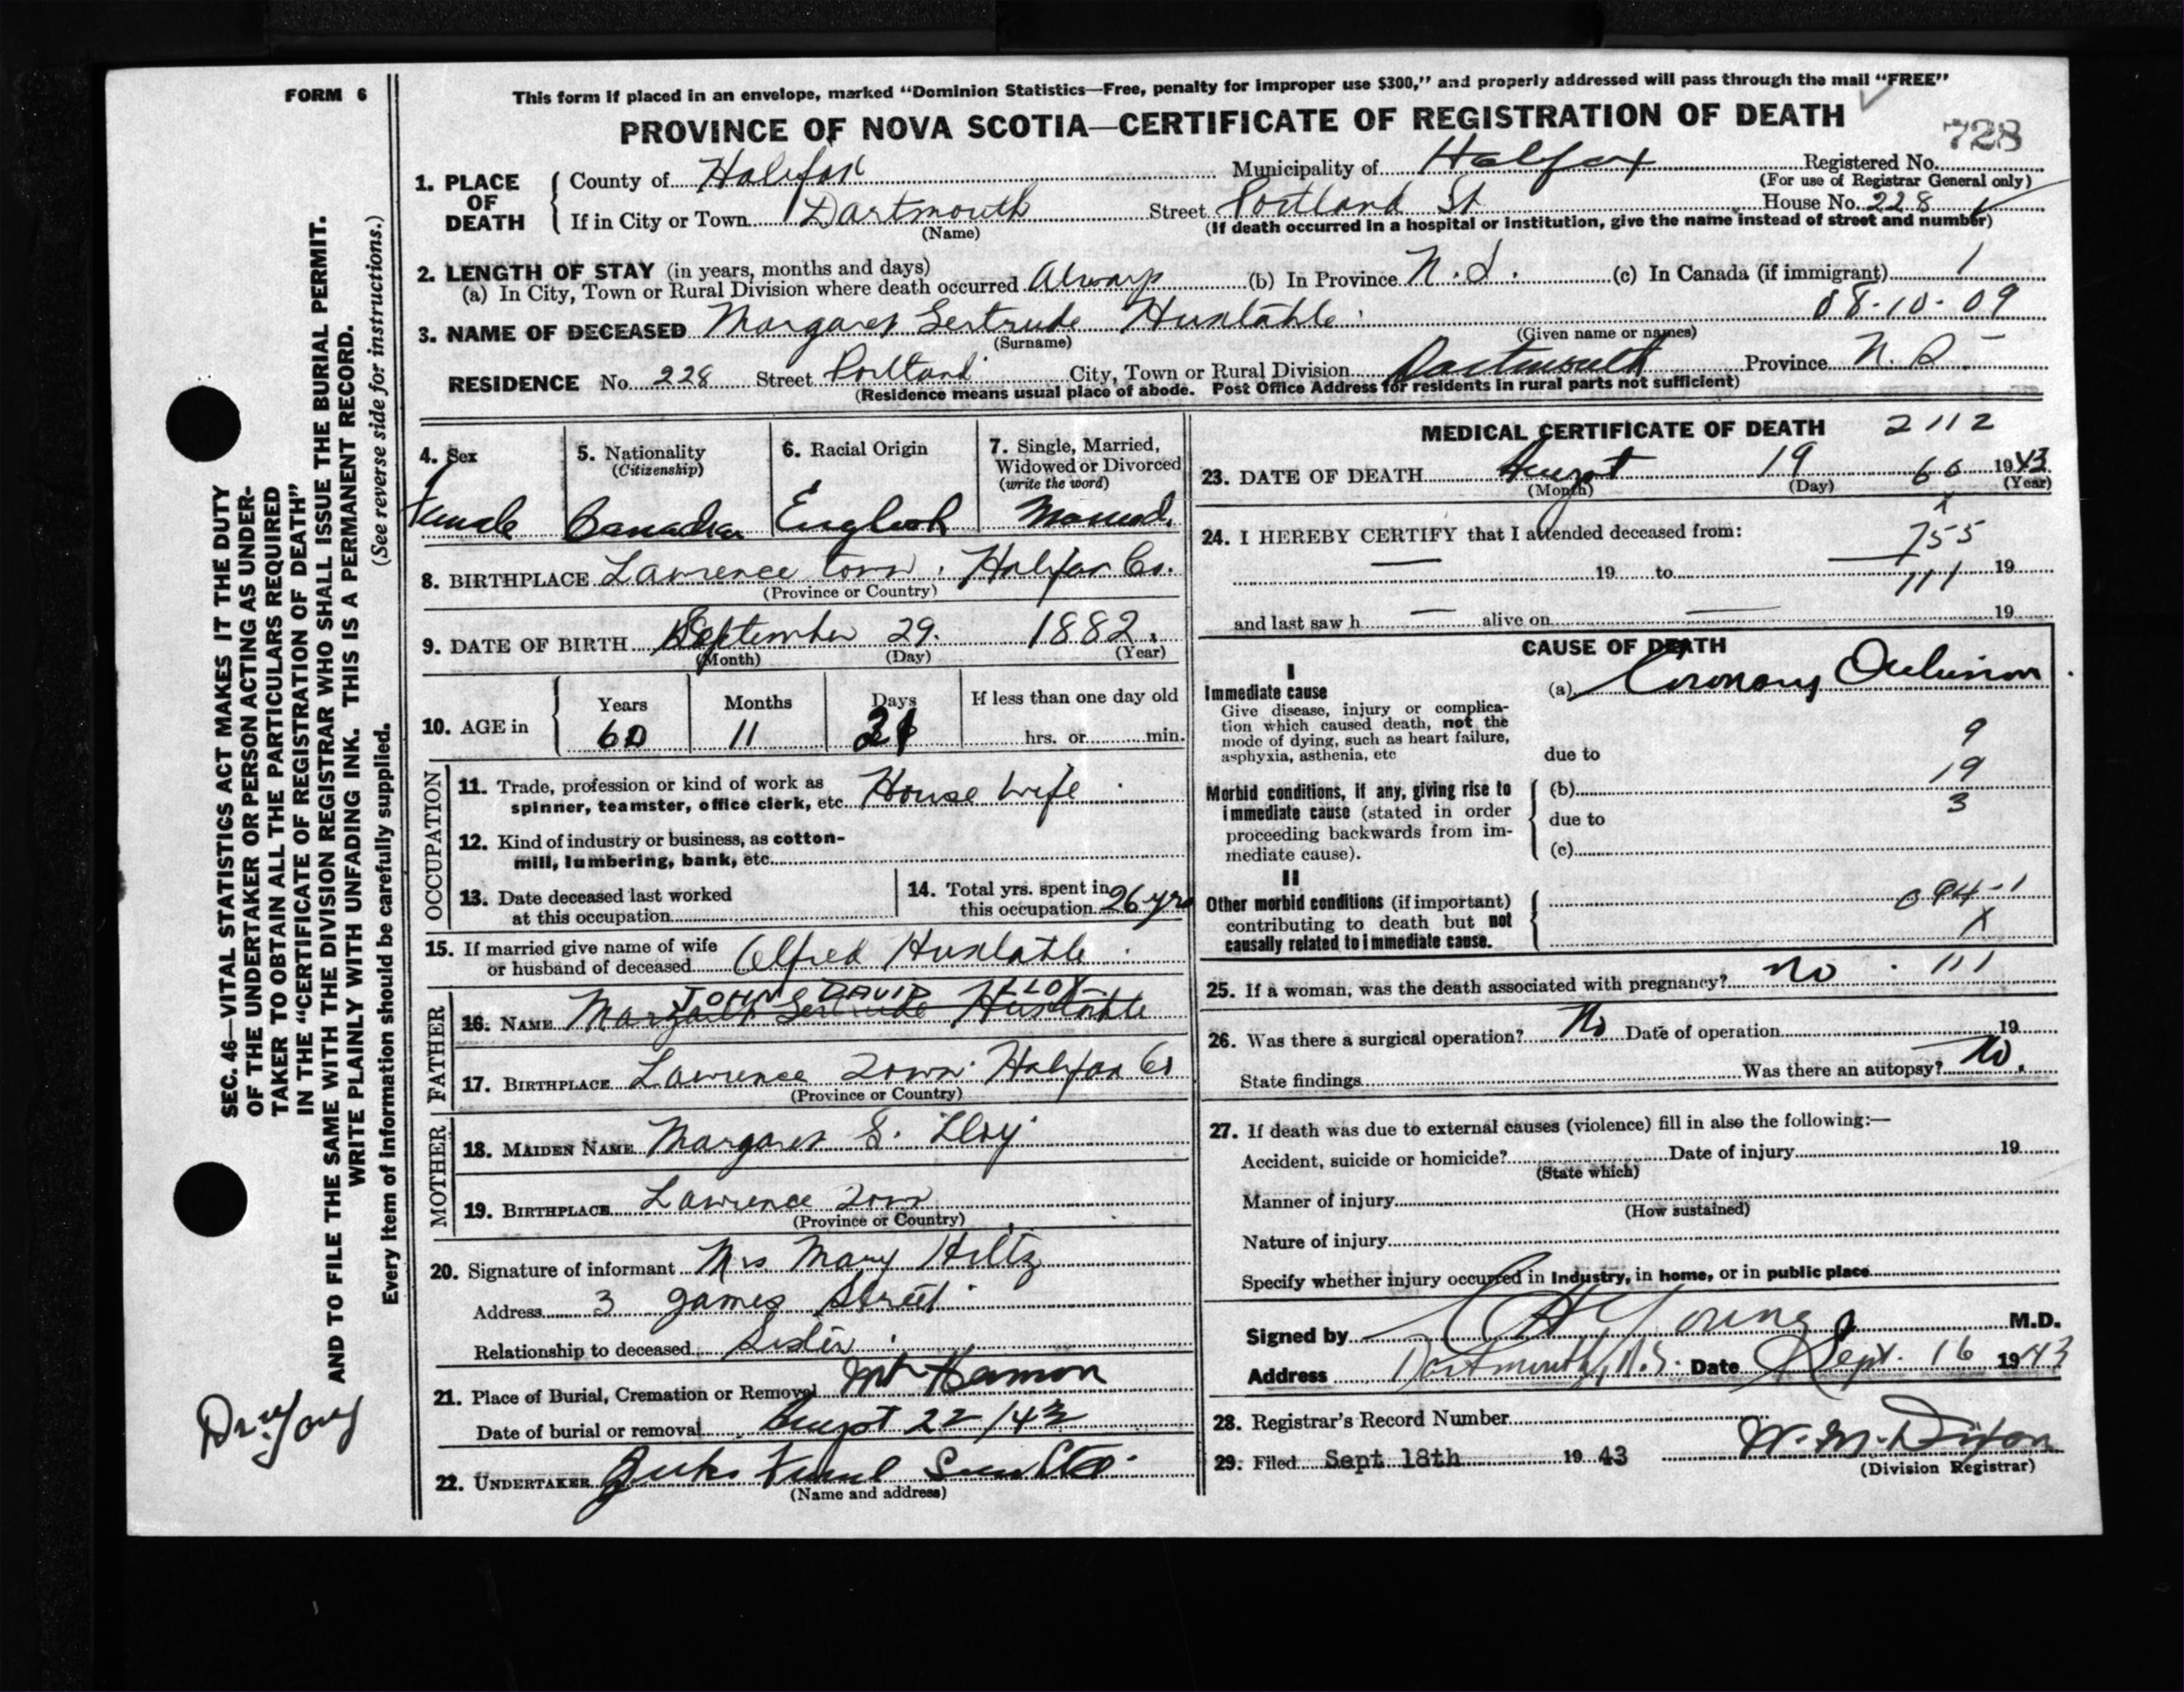 FORM 6
This form if placed in an envelope, marked "Dominion Statistics—Free, penalty for improper use $300," and properly addressed will pass through the mail "FREE"
PROVINCE OF NOVA SCOTIA—CERTIFICATE OF REGISTRATION OF DEATH
728
1. PLACE OF DEATH County of Halifax Municipality of Halifax Registered No.
(For use of Registrar General only)
If in City or Town Dartmouth Street Portland St House No. 228
(Name) (If death occurred in a hospital or institution, give the name instead of street and number)
2. LENGTH OF STAY (in years, months and days)
(a) In City, Town or Rural Division where death occurred Always (b) In Province N.S. (c) In Canada (if immigrant) 1
08-10-09
3. NAME OF DECEASED Margaret Gertrude Huxtable
(Surname) (Given name or names)
RESIDENCE No. 228 Street Portland City, Town or Rural Division Dartmouth Province N.S.
(Residence means usual place of abode. Post Office Address for residents in rural parts not sufficient)
4. Sex Female
5. Nationality (Citizenship) Canadian
6. Racial Origin English
7. Single, Married, Widowed or Divorced (write the word) Married.
8. BIRTHPLACE Lawrence town. Halifax Co.
(Province or Country)
9. DATE OF BIRTH September 29. 1882.
(Month) (Day) (Year)
10. AGE in Years 60 Months 11 Days If less than one day old hrs. or min.
OCCUPATION
11. Trade, profession or kind of work as spinner, teamster, office clerk, etc. House wife
12. Kind of industry or business, as cotton-mill, lumbering, bank, etc.
13. Date deceased last worked at this occupation
14. Total yrs. spent in this occupation 26 yrs
15. If married give name of wife or husband of deceased Alfred Huxtable
FATHER
JOHN DAVID LLOY
16. NAME Margaret Gertrude Huxtable
17. BIRTHPLACE Lawrence Town Halifax Co
(Province or Country)
MOTHER
18. MAIDEN NAME Margaret S. Lloy
19. BIRTHPLACE Lawrence Town
(Province or Country)
20. Signature of informant Mrs Mary Hiltz
Address 3 James Street
Relationship to deceased Sister
21. Place of Burial, Cremation or Removal Mt Hermon
Date of burial or removal August 22/43
22. UNDERTAKER
(Name and address)
MEDICAL CERTIFICATE OF DEATH 2112
23. DATE OF DEATH August 19 60 1943
(Month) (Day) (Year)
x
24. I HEREBY CERTIFY that I attended deceased from: 755
19 to 111 19
and last saw h alive on 19
CAUSE OF DEATH
I
Immediate cause
Give disease, injury or complication which caused death, not the mode of dying, such as heart failure, asphyxia, asthenia, etc
(a) Coronary Occlusion
9
due to
19
(b)
3
Morbid conditions, if any, giving rise to immediate cause (stated in order proceeding backwards from immediate cause).
due to
(c)
II
Other morbid conditions (if important) contributing to death but not causally related to immediate cause.
094-1
X
25. If a woman, was the death associated with pregnancy? no 111
26. Was there a surgical operation? No Date of operation 19
State findings Was there an autopsy? No.
27. If death was due to external causes (violence) fill in also the following:—
Accident, suicide or homicide? Date of injury 19
(State which)
Manner of injury
(How sustained)
Nature of injury
Specify whether injury occurred in Industry, in home, or in public place
Signed by Young M.D.
Address Dartmouth, N.S. Date Sept. 16 1943
28. Registrar's Record Number
29. Filed Sept 18th 1943 W. M. Dixon
(Division Registrar)
SEC. 46—VITAL STATISTICS ACT MAKES IT THE DUTY
OF THE UNDERTAKER OR PERSON ACTING AS UNDER-
TAKER TO OBTAIN ALL THE PARTICULARS REQUIRED
IN THE "CERTIFICATE OF REGISTRATION OF DEATH"
AND TO FILE THE SAME WITH THE DIVISION REGISTRAR WHO SHALL ISSUE THE BURIAL PERMIT.
WRITE PLAINLY WITH UNFADING INK. THIS IS A PERMANENT RECORD.
(See reverse side for instructions.)
Every item of information should be carefully supplied.